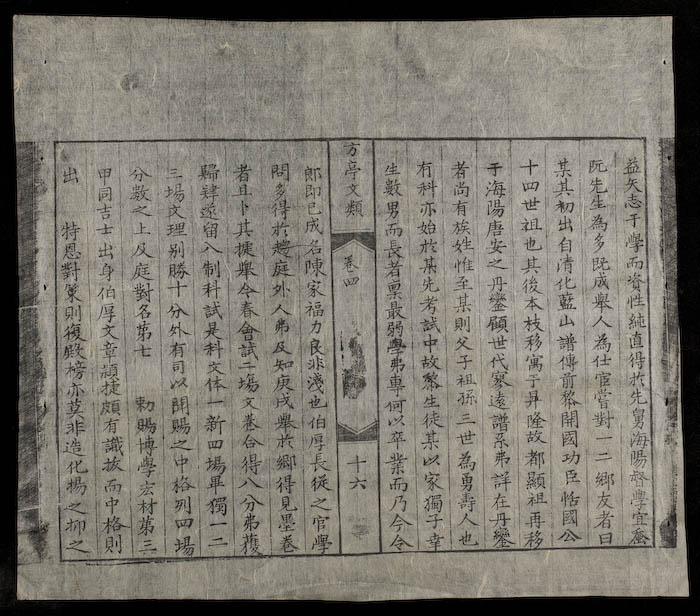 益矣志于學而資性純直得於先舅海陽齋學宜蚕
阮先生為多既成舉人為仕宦嘗對一二鄉友者曰
某其初出自清化藍山譜傳前黎開國功臣恬國公
十四世祖也其後本枝移寓于昇隆故都顯祖再移
于海陽唐安之丹鑾顧世代寥遠譜系弗詳在丹鑾
者尚有族姓惟至某則父子祖孫三世為勇壽人也
有科亦始於某先考試中故黎生徒某以家獨子幸
生數男而長者禀最弱學弗專何以卒業而乃今令
方亭文類
卷四
十六
郎即已成名陳家福力良非淺也伯厚長從之官學
問多得於趨庭外人弗及知庚戌舉於鄉得見墨卷
者且卜其捷舉今春會試二塲文卷合得八分弗獲
歸肄遂留八制科試是科文体一新四塲畢獨一二
三塲文理别勝十分外有司以聞賜之中格列四塲
分數之上及庭對名第七 敕賜博學宏材第三
甲同吉士出身伯厚文章頴捷頗有識拔而中格則
出 特恩對策則復殿榜亦莫非造化揚之抑之